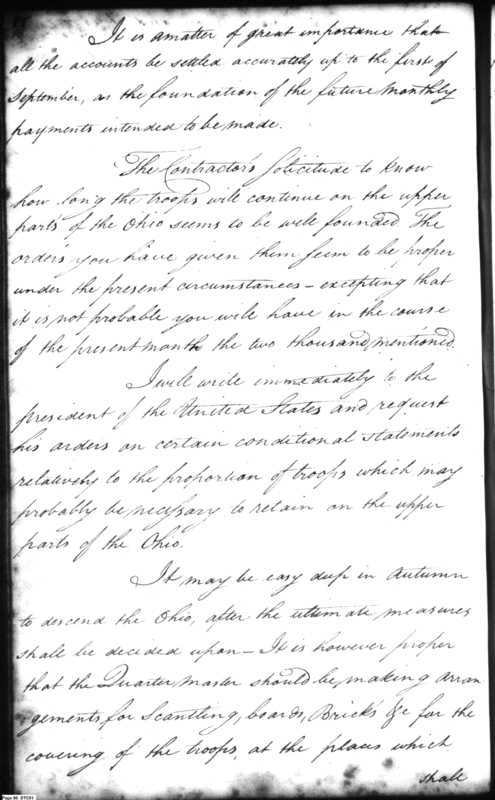 It is a matter of great importance that
all the accounts be settled accurately up to the first of
September, as the foundation of the future monthly
payments intended to be made.
The Contractor's Solicitude to know
how long the troops will continue on the upper
parts of the Ohio seems to be well founded. The
orders you have given them seem to be proper
under the present circumstances – excepting that
it is not probable you will have in the course
of the present month the two thousand mentioned.
I will write immediately to the
president of the United States and request
his orders on certain conditional statements
relatively to the proportion of troops which may
probably be necessary to retain on the upper
parts of the Ohio.
It may be easy deep in Autumn
to descend the Ohio, after the ultimate measures
shall be decided upon – It is however proper
that the Quarter Master should be making arran
gements for Scantling, boards, Bricks &c for the
covering of the troops, at the places which
shall
Page 80 DTC01